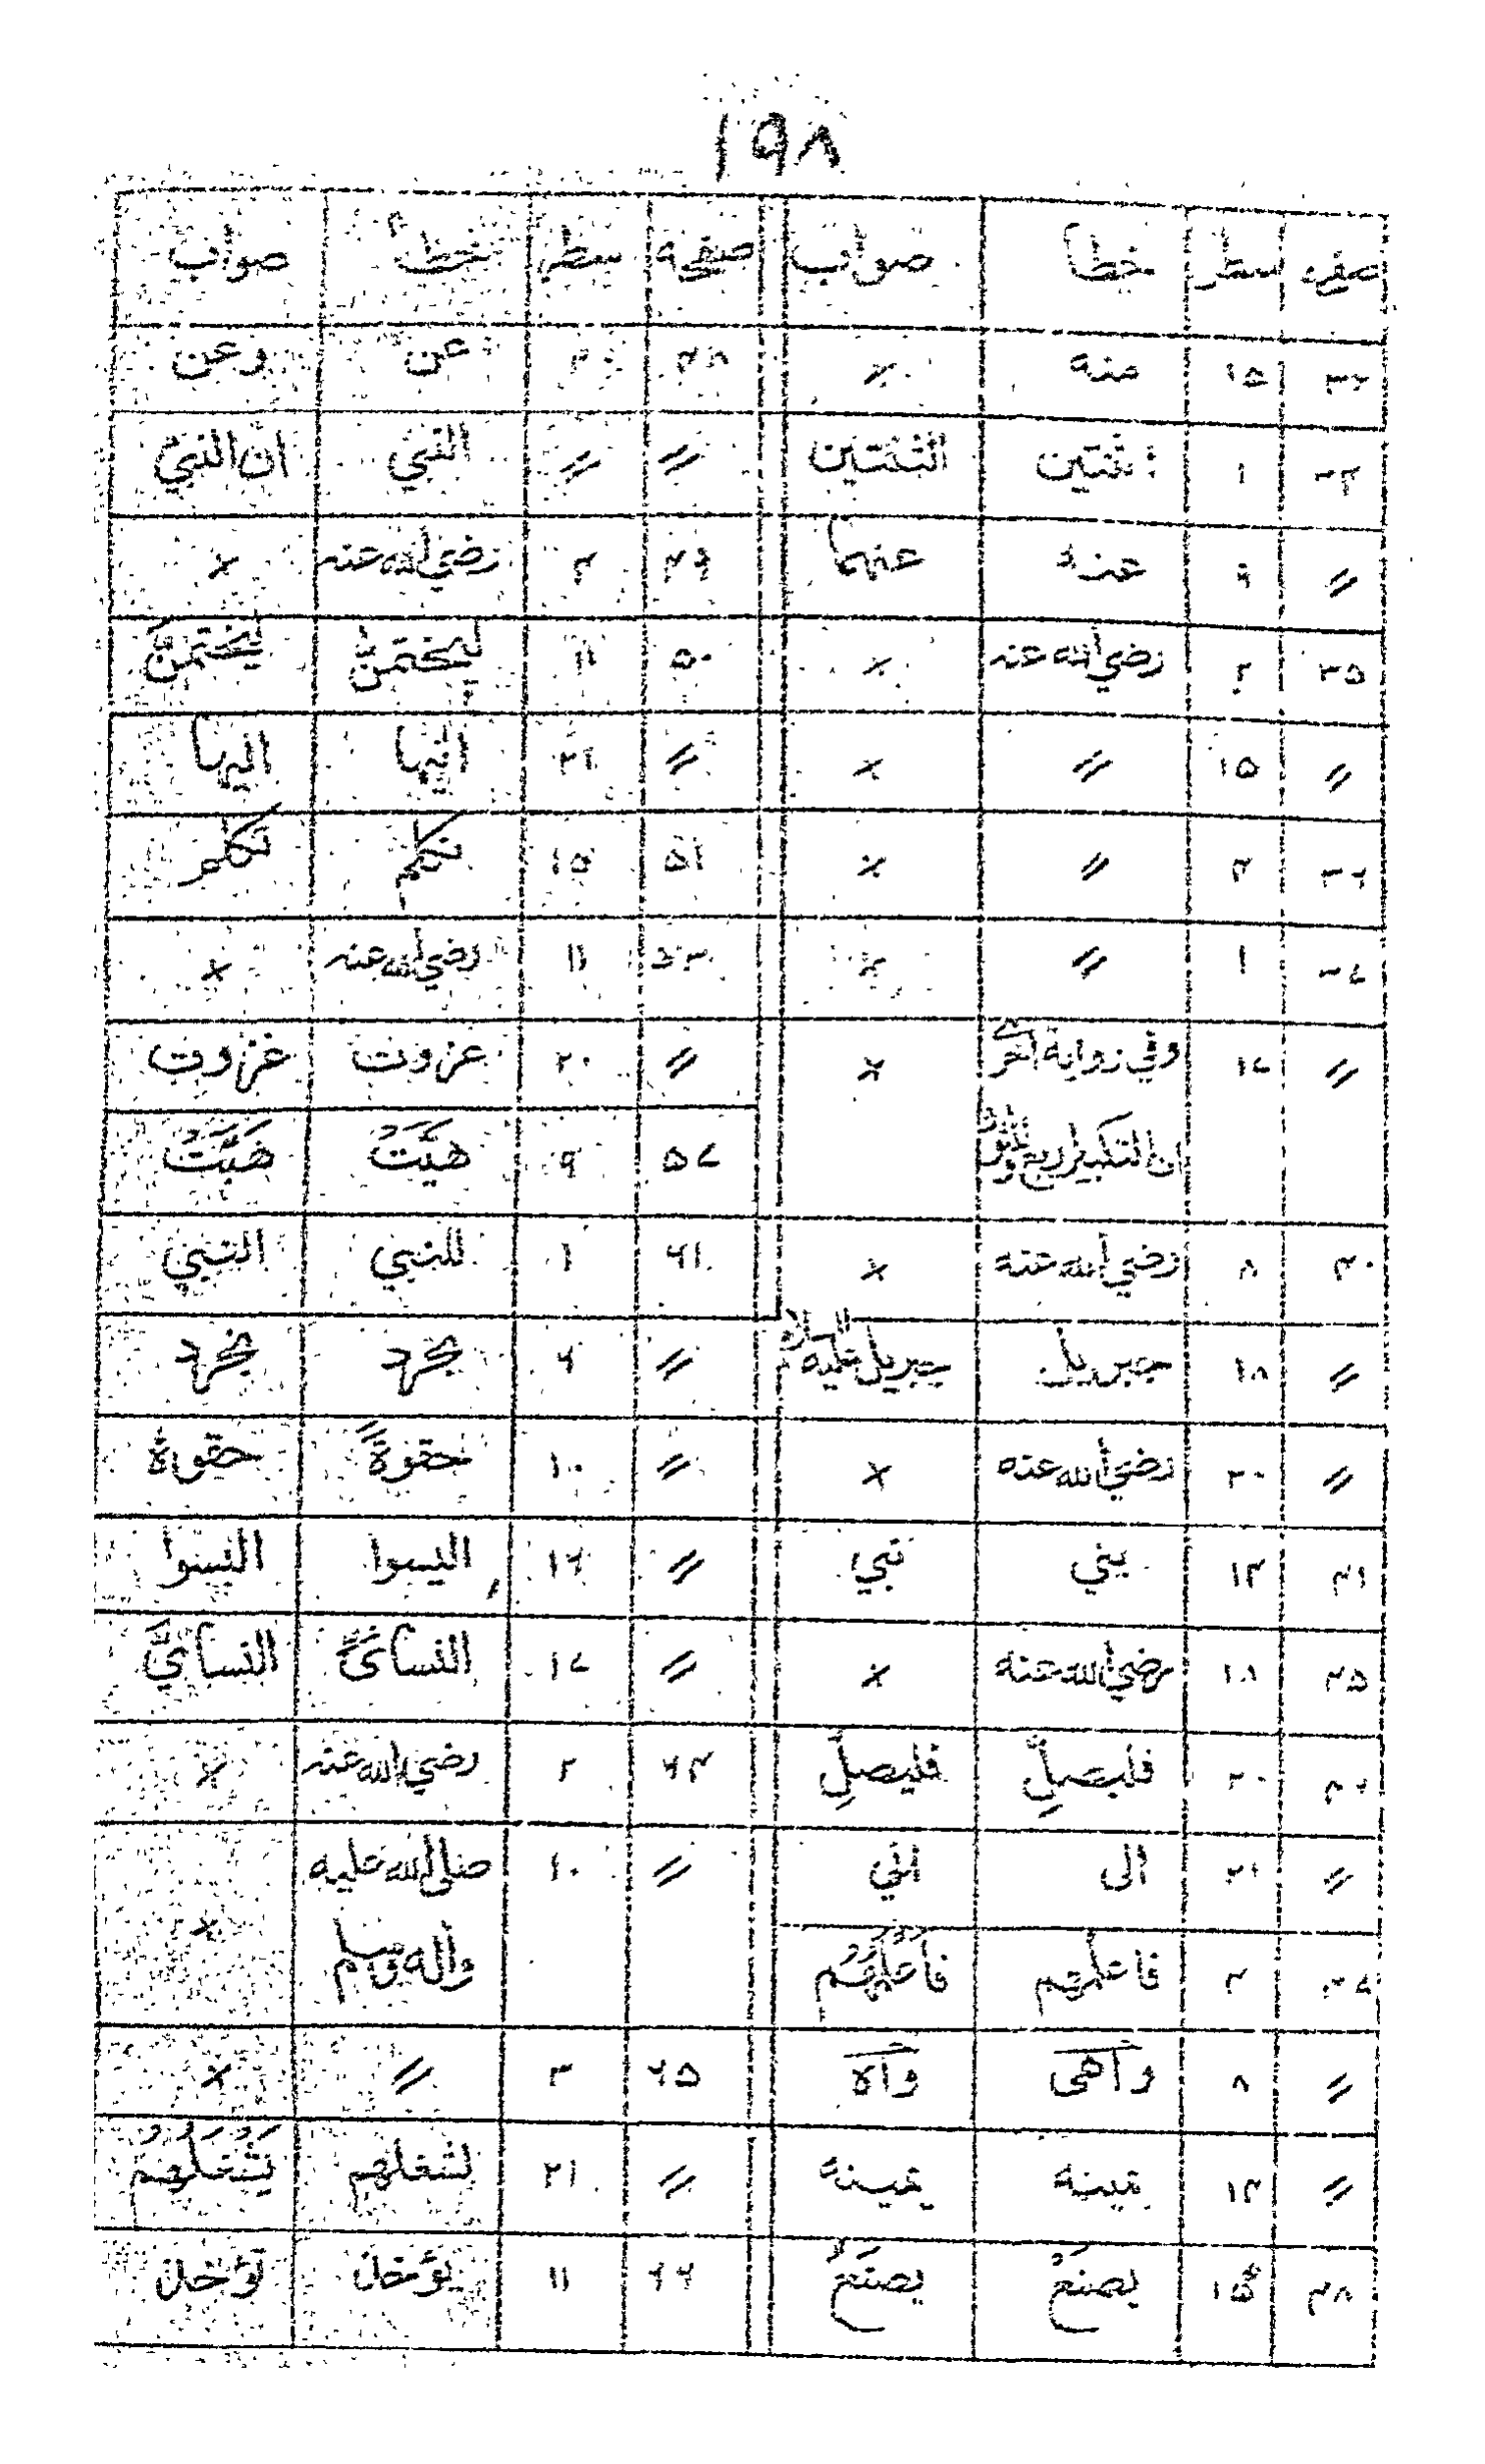 ۱۹۸
صفحہ سطر خطا صواب صفحہ سطر خطأ صواب
۱۵ منه × ۴۸ ۲۰ عن وعن
۳۴ ۱ ثنتين الثنتين 〃 〃 النبي ان النبي
〃 ۹ عنه عنهما ۴۹ ۴ رضي الله عنه ×
۳۵ ۲ رضي الله عنه × ۵۰ ۱۱ ليختمن ليختمن
〃 ۱۵ 〃 × 〃 ۲۱ اليها اليها
۳۶ ۴ 〃 × ۵۱ ۱۵ تكلم
۳۷ ۱ 〃 × ۵۳ ۱۱ رضي الله عنه ×
〃 ۱۷ وفي رواية اخرى × 〃 ۲۰ عزوت غزوت
ان التكبير اربع ۵۷ ۹ هيّت هبّت
۴۰ ۸ رضي الله عنه × ۶۱ ۱ للنبي النبي
〃 ۱۸ جبريل جبريل عليه السلام 〃 ۶
〃 ۲۰ رضي الله عنه × 〃 ۱۰ حقوةً حقوة
۴۱ ۱۴ بني نبي 〃 ۱۶ اليسوا اليسوا
۴۵ ۱۸ رضي الله عنه × 〃 ۱۷ النسائ النسائيَّ
۴۶ ۲۰ فليصلّ فليصلِّ ۶۴ ۲ رضي الله عنه ×
〃 ۲۱ الى الي 〃 ۱۰ صلى الله عليه
۴۷ ۴ فاعلمهم فَاَعْلِمْهُم وأله وسلم ×
〃 ۸ وآهى وآه ۶۵ ۳ 〃 ×
〃 ۱۴ يمينه 〃 ۲۱ لشغلهم يَشْغَلُهُم
۴۸ ۱۵ يصنعْ يصنعُ ۶۶ ۱۱ يؤخذ تؤخذ